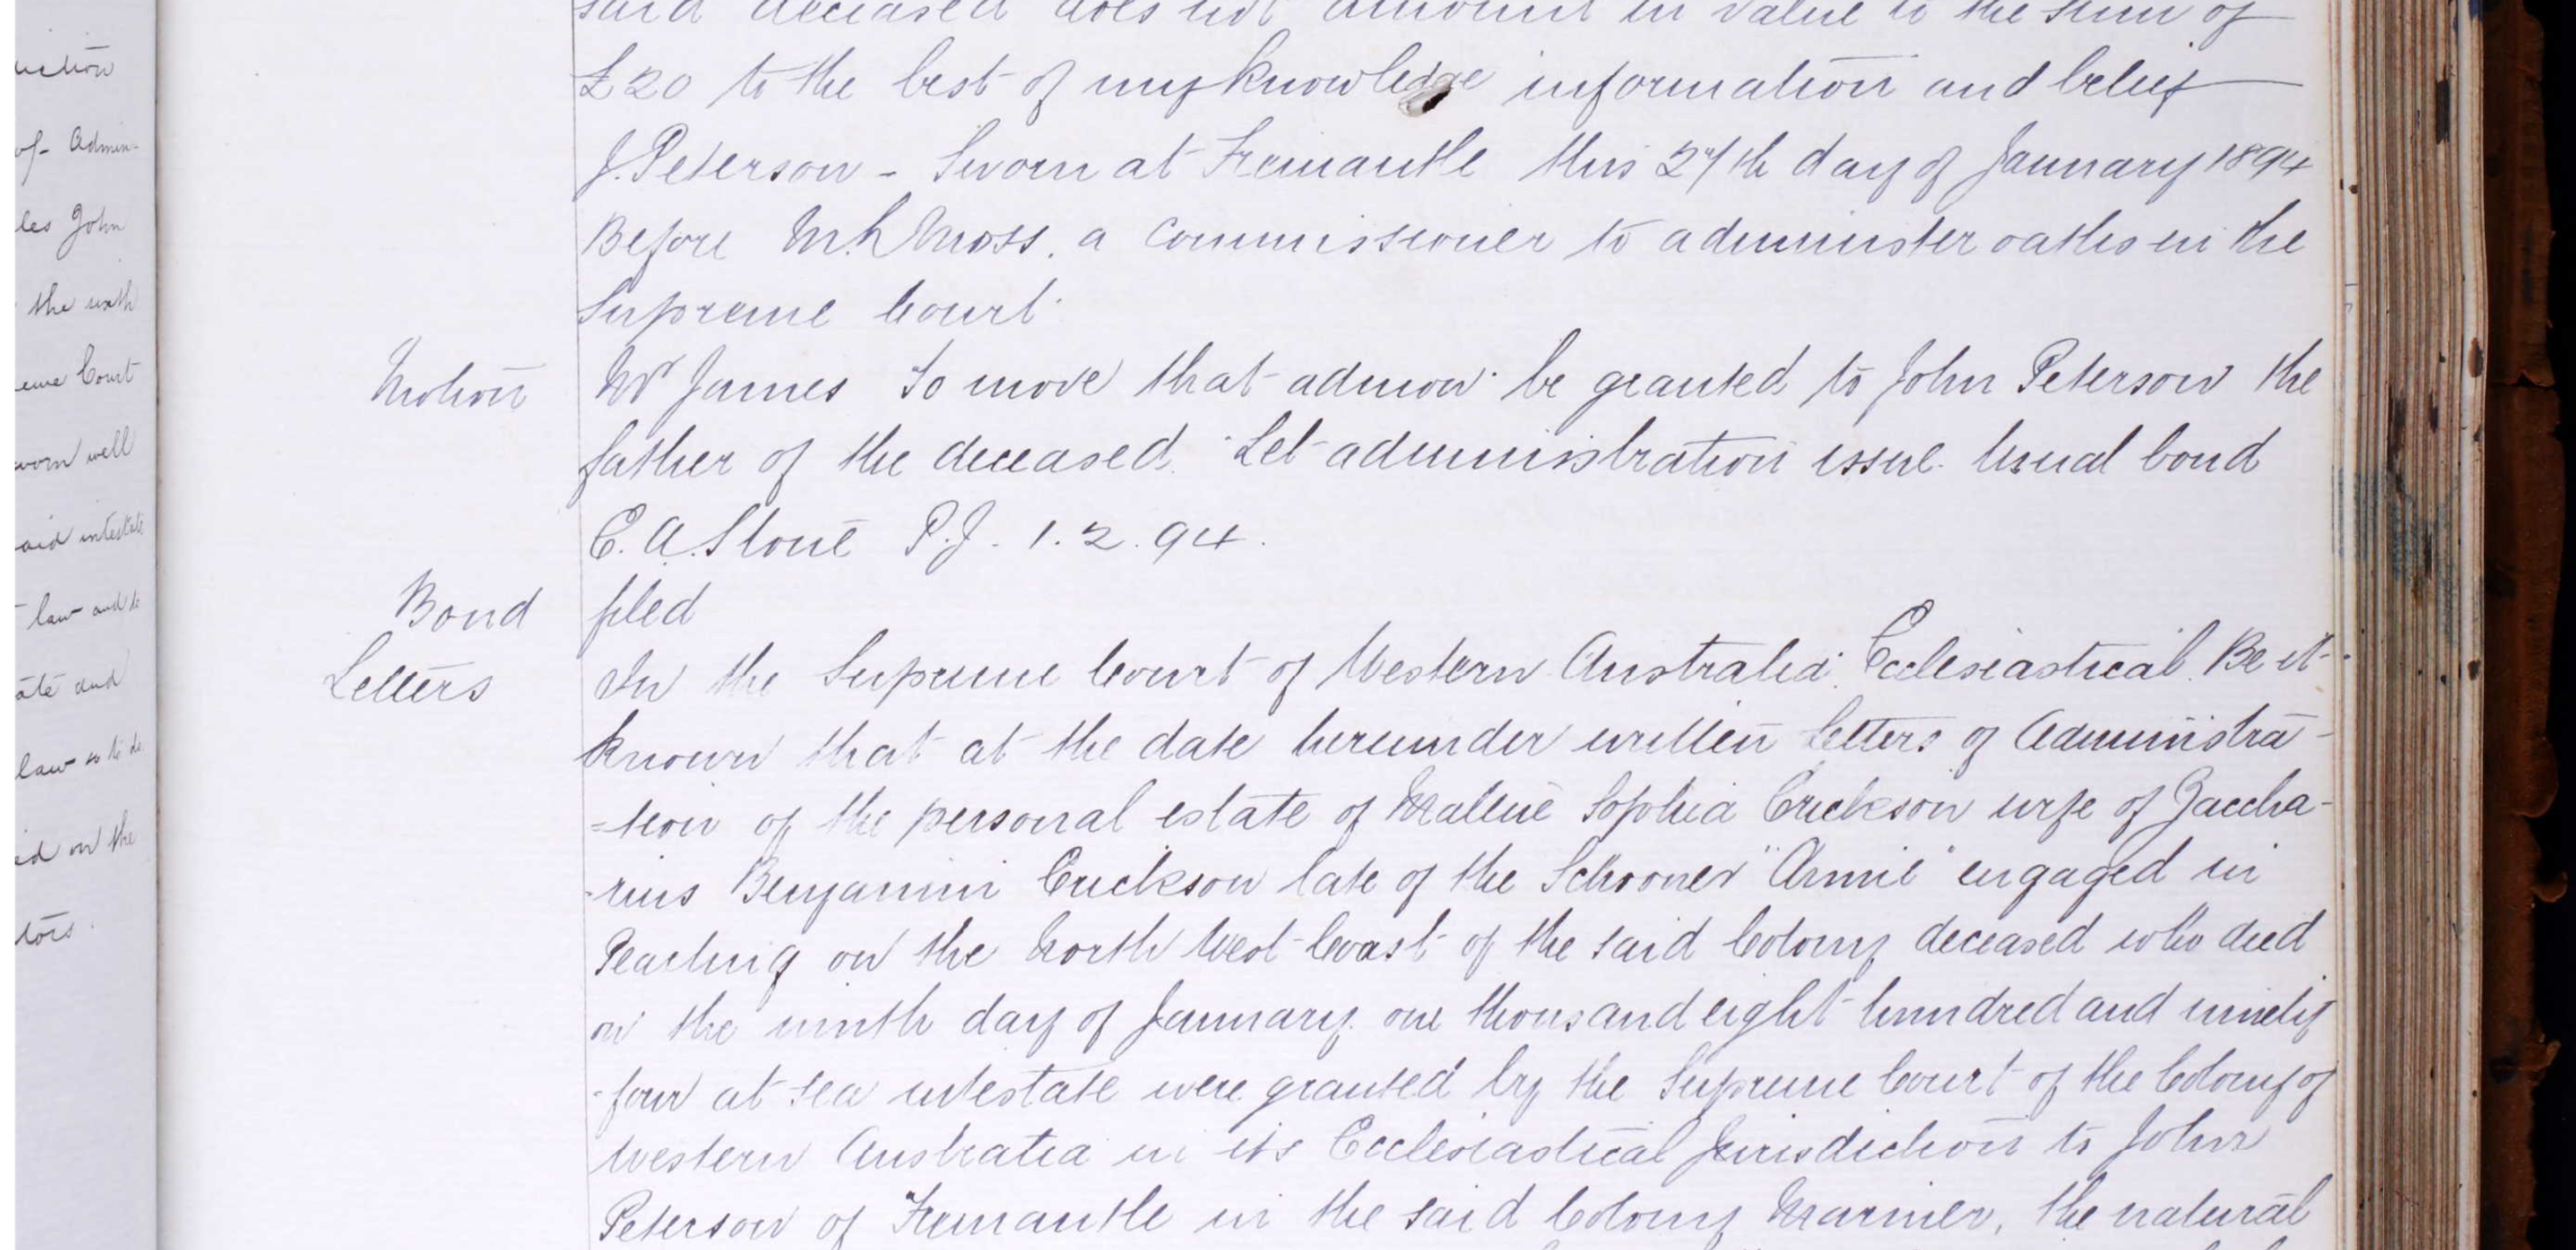 uction
of Admin-
les John
the sixth
eme Court
worn well
aid intestate
law and to
ate and
law so to do
ed on the
tors.
said deceased does not amount in value to the sum of
£20 to the best of my knowledge information and belief
J. Peterson - Sworn at Fremantle this 27th day of January 1894
Before M.L Moss. a Commissioner to administer oaths in the
Supreme Court.
Motion
Mr James To move that admon. be granted to John Peterson the
father of the deceased. Let administration issue. Usual bond
E.A. Stone P.J. 1.2.94.
Bond
filed
Letters
In the Supreme Court of Western Australia. Ecclesiastical. Be it
known that at the date hereunder written letters of Administra-
=tion of the personal estate of Sophia Erickson wife of Zaccha-
-rius Benjamin Erickson late of the Schooner "Annie" engaged in
Pearling on the North West Coast of the said Colony deceased who died
on the ninth day of January one thousand eight hundred and ninety
-four at sea intestate were granted by the Supreme Court of the Colony of
Western Australia in its Ecclesiastical Jurisdiction to John
Peterson of Fremantle in the said Colony Mariner, the natural